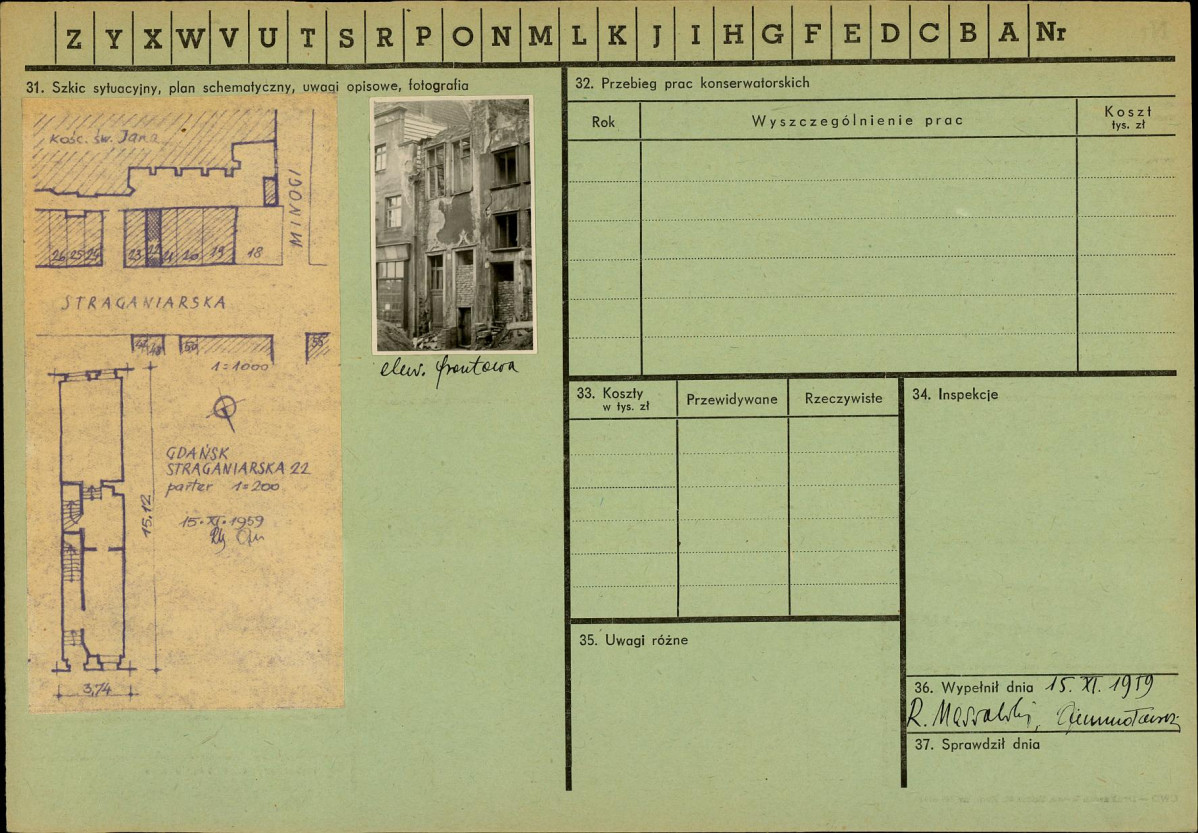 Z Y X W V U T S R P O N M L K J I H G F E D C B A Nr
31. Szkic sytuacyjny, plan schematyczny, uwagi opisowe, fotografia
Kość. św. Jana
MINOGI
26 25 24 23 22 21 20 19 18
STRAGANIARSKA
50 55
1=1000
GDAŃSK
STRAGANIARSKA 22
parter 1=200
15.XI.1959
15,12
3,74
elew. frontowa
32. Przebieg prac konserwatorskich
Rok Wyszczególnienie prac Koszt
tys. zł
33. Koszty
w tys. zł
Przewidywane Rzeczywiste
34. Inspekcje
35. Uwagi różne
36. Wypełnił dnia 15. XI. 1959
R. Massalski,
37. Sprawdził dnia